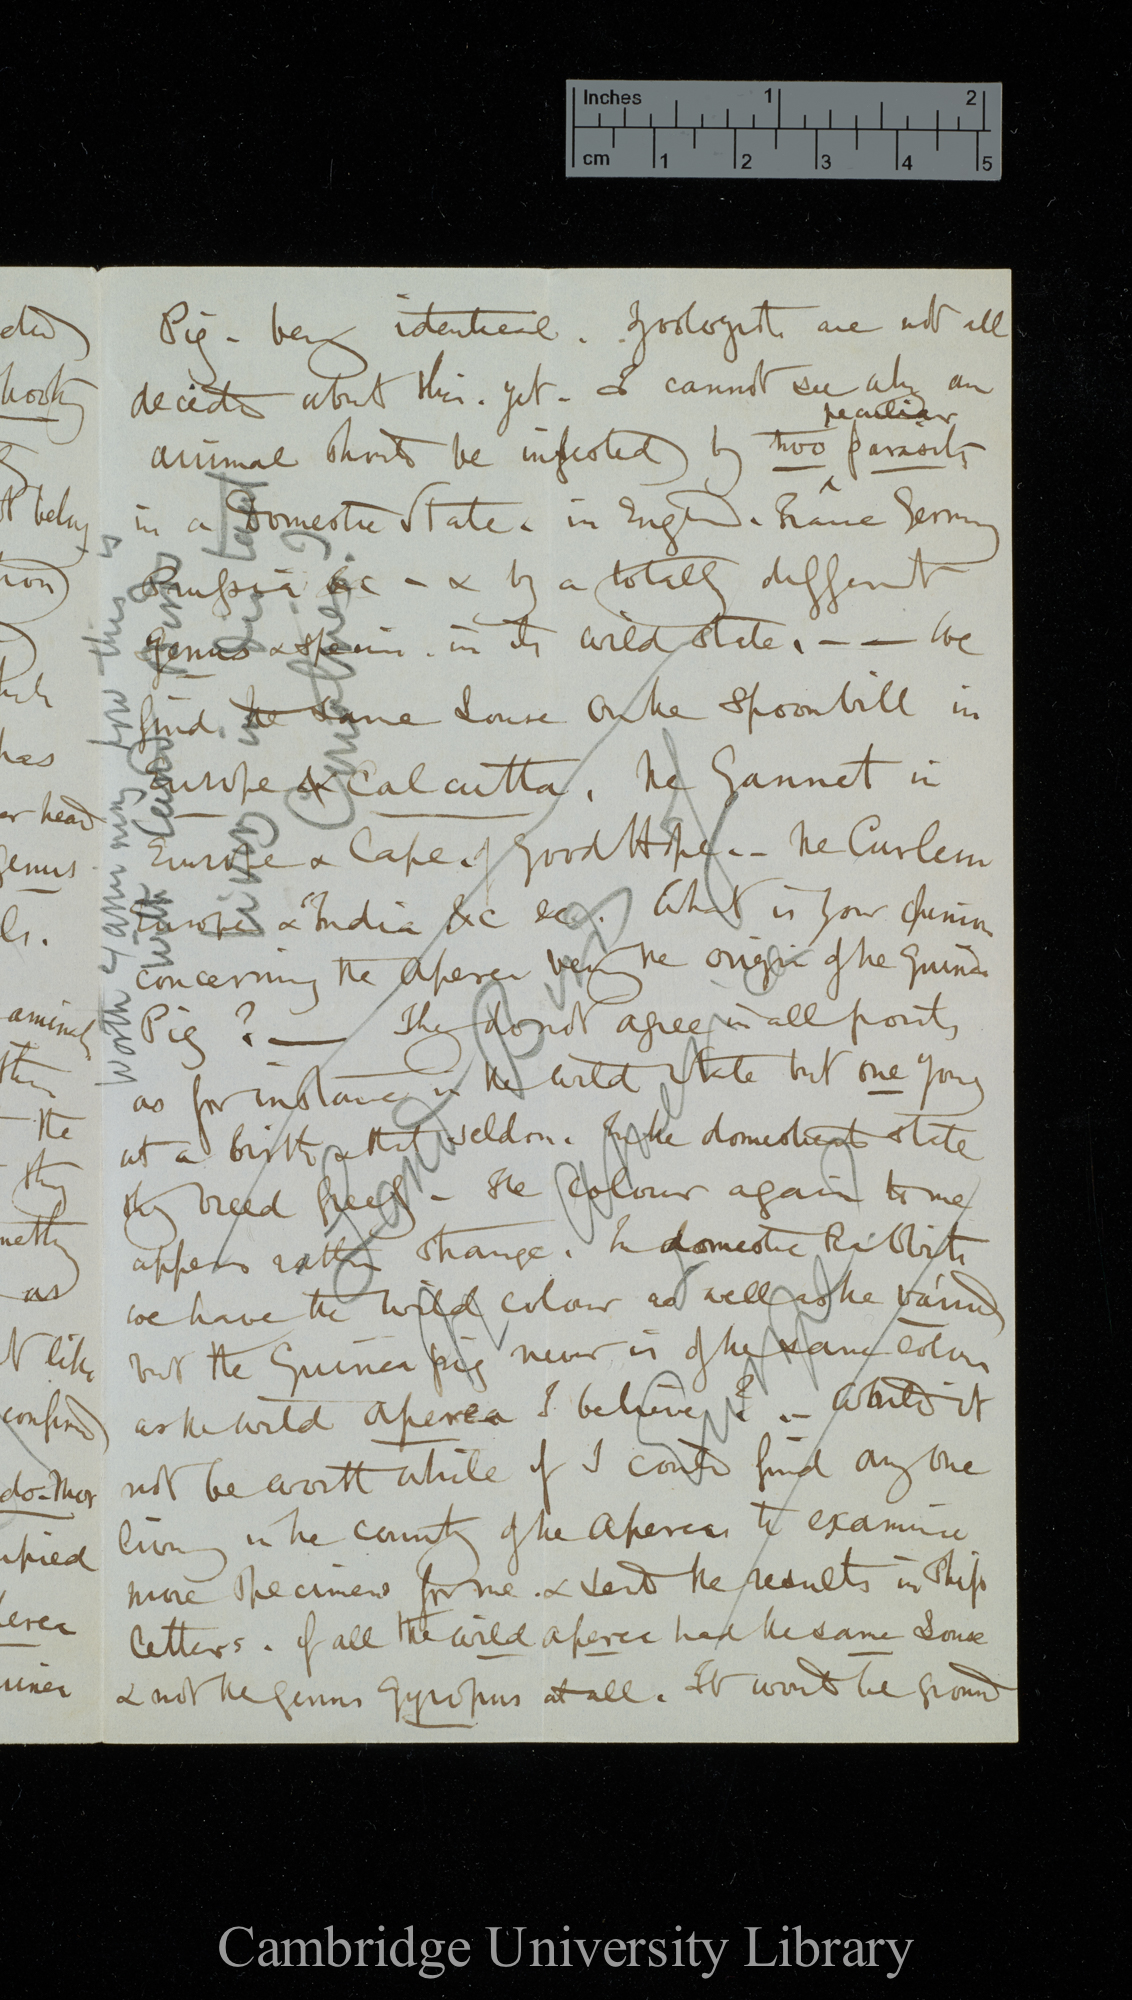 Inches 1 2
cm 1 2 3 4 5
Pig - being identical. Zoologists are not all
decided about this. yet - I cannot see why an
animal should be infested by two peculiar parasites
in a Domestic State. in England. France Germany
Prussia &c - & by a totally different
genus & species. in its wild state. - - We
find the same Louse on the Spoonbill in
Europe & Calcutta. the Gannet in
Europe & Cape of Good Hope. - the Curlew
Europe & India &c &c. What is your opinion
concerning the Aperea being the origin of the Guinea
Pig? - They do not agree in all points
as for instance in the wild state but one young
at a birth & that seldom. In the domesticated state
they breed freely - The colour again to me
appears rather strange. In domestic Rabbits
we have the wild colour as well as the varied
but the Guinea pig never is of the same colour
as the wild aperea I believe? - Would it
not be worth while if I could find any one
living in the country of the Apereas to examine
more specimens for me. & send the results in Ship
letters. if all the wild aperea had the same Louse
& not the genus Gyropus at all. It would be ground
Worth examining how this is
with Land Birds
living in
hooky
t belong
has
er head
genus
ls.
the
they
as
t like
confined
upied
Cambridge University Library